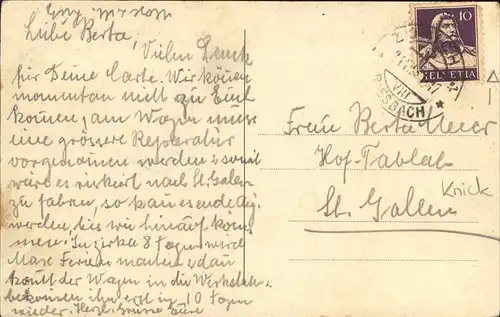 Liebe Berta, Vielen Dank
für Deine Karte. Wir können
momentan nicht zu Euch
kommen, am Wagen muss
eine grössere Reperatur
vorgenommen werden & somit
wäre es riskiert nach St. Gallen
zu fahren, so kan es ende Aug.
werden, bis wir hinauf kom
men. In zirka 8 Tagen werd
Max Ferien machen & dan
komt der Wagen in die Werkstatt
bekommen ihn erst in 10 Tagen
wieder. Herzl. Grüsse Eure
10
HELVETIA
VIII
RIESBACH
Frau Berta Meier
Hof-Tablat
St. Gallen
Knick